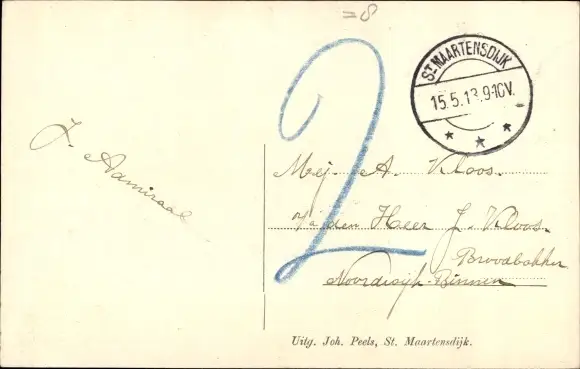 =8
ST MAARTENSDIJK
15.5.13.9-10V.
2
J. Admiraal
Mej. A. Kloos.
p/a den Heer J. Kloos.
Broodbakker
Noordwijk-Binnen
Uitg. Joh. Peels, St. Maartensdijk.